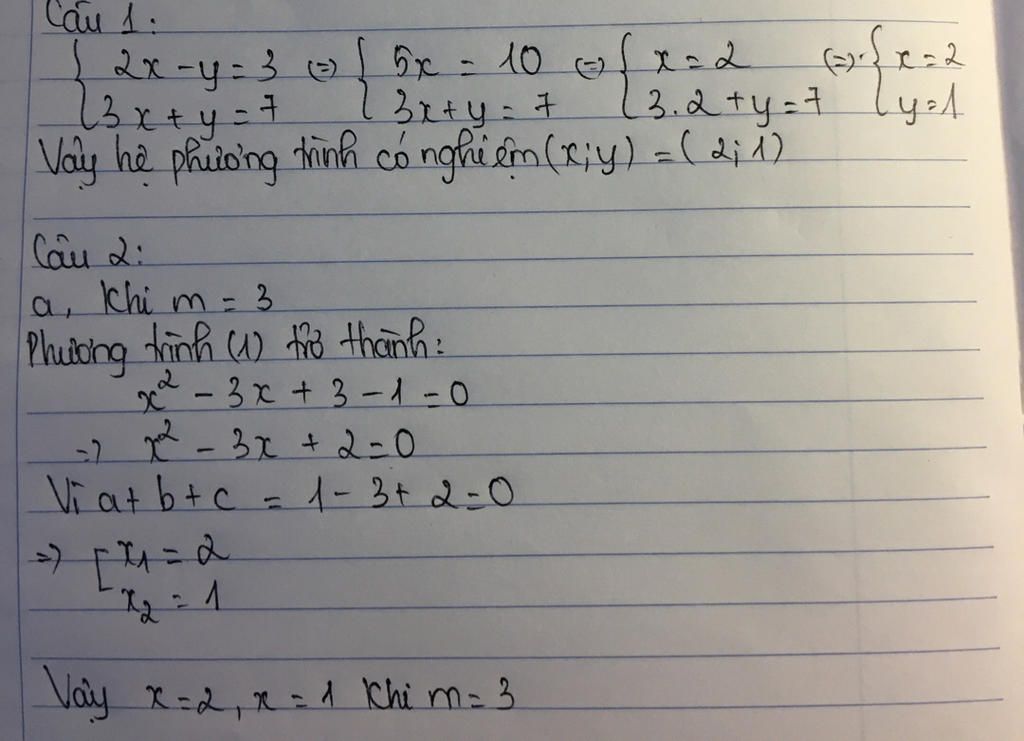 Câu 1:
{ 2x - y = 3 (=) { 5x = 10 (=) { x = 2 (=) { x = 2
{ 3x + y = 7 { 3x + y = 7 { 3.2 + y = 7 { y = 1
Vậy hệ phương trình có nghiệm (x;y) = (2;1)
Câu 2:
a, Khi m = 3
Phương trình (1) trở thành:
x² - 3x + 3 - 1 = 0
=> x² - 3x + 2 = 0
Vì a + b + c = 1 - 3 + 2 = 0
=> [ x₁ = 2
x₂ = 1
Vậy x = 2, x = 1 khi m = 3